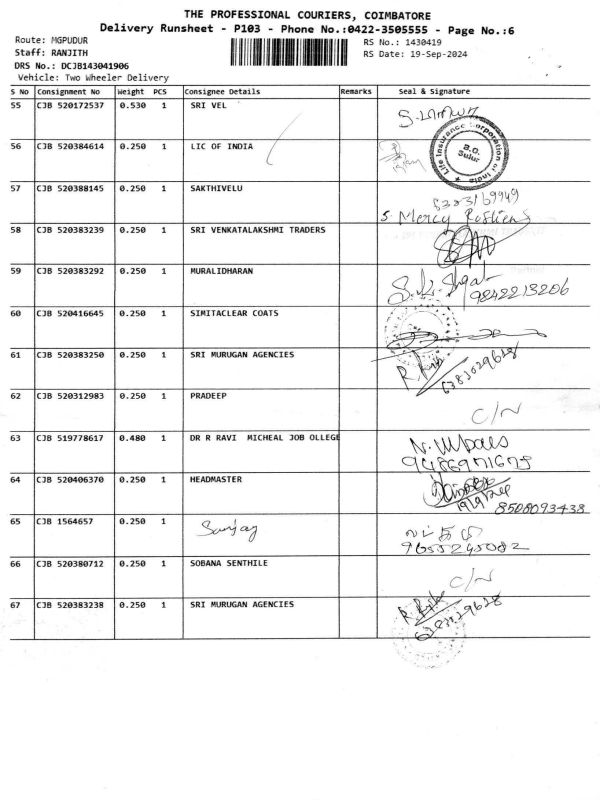 THE PROFESSIONAL COURIERS, COIMBATORE
Delivery Runsheet - P103 - Phone No.:0422-3505555 - Page No.:6
Route: MGPUDUR RS No.: 1430419
Staff: RANJITH RS Date: 19-Sep-2024
DRS No.: DCJB143041906
Vehicle: Two Wheeler Delivery
S No Consignment No Weight PCS Consignee Details Remarks Seal & Signature
55 CJB 520172537 0.530 1 SRI VEL
56 CJB 520384614 0.250 1 LIC OF INDIA Life Insurance Corporation of India B.O. Sulur
57 CJB 520388145 0.250 1 SAKTHIVELU
S. Mercy
58 CJB 520383239 0.250 1 SRI VENKATALAKSHMI TRADERS
59 CJB 520383292 0.250 1 MURALIDHARAN
9842213206
60 CJB 520416645 0.250 1 SIMITACLEAR COATS
61 CJB 520383250 0.250 1 SRI MURUGAN AGENCIES
6383029628
62 CJB 520312983 0.250 1 PRADEEP
C/N
63 CJB 519778617 0.480 1 DR R RAVI MICHEAL JOB OLLEGE
9486971675
64 CJB 520406370 0.250 1 HEADMASTER
19/9/24
8508093438
65 CJB 1564657 0.250 1 Sanjay
9655245082
66 CJB 520380712 0.250 1 SOBANA SENTHILE
C/N
67 CJB 520383238 0.250 1 SRI MURUGAN AGENCIES